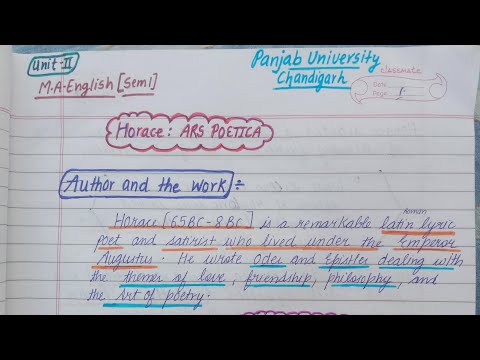 Unit-II
Panjab University
Chandigarh
M.A.English [Sem 1]
classmate
Date
Page 1
Horace: ARS POETICA
Author and the Work ÷
Roman
Horace [65BC-8BC] is a remarkable latin lyric
Poet and satirist who lived under the Emperor
Augustus. He wrote Odes and Epistles dealing with
the themes of love, friendship, philosophy, and
the Art of poetry.